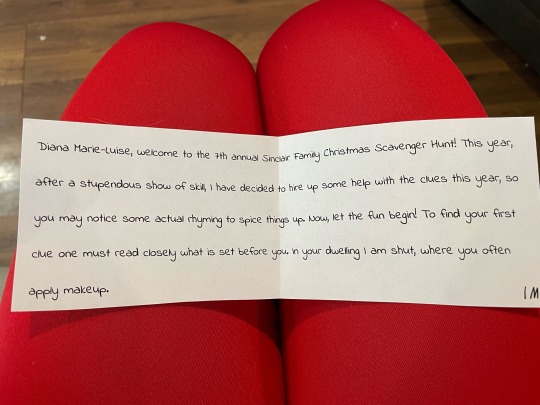 Diana Marie-Luise, welcome to the 7th annual Sinclair Family Christmas Scavenger Hunt! This year,
after a stupendous show of skill, I have decided to hire up some help with the clues this year, so
you may notice some actual rhyming to spice things up. Now, let the fun begin! To find your first
clue one must read closely what is set before you. In your dwelling I am shut, where you often
apply makeup.
1 M